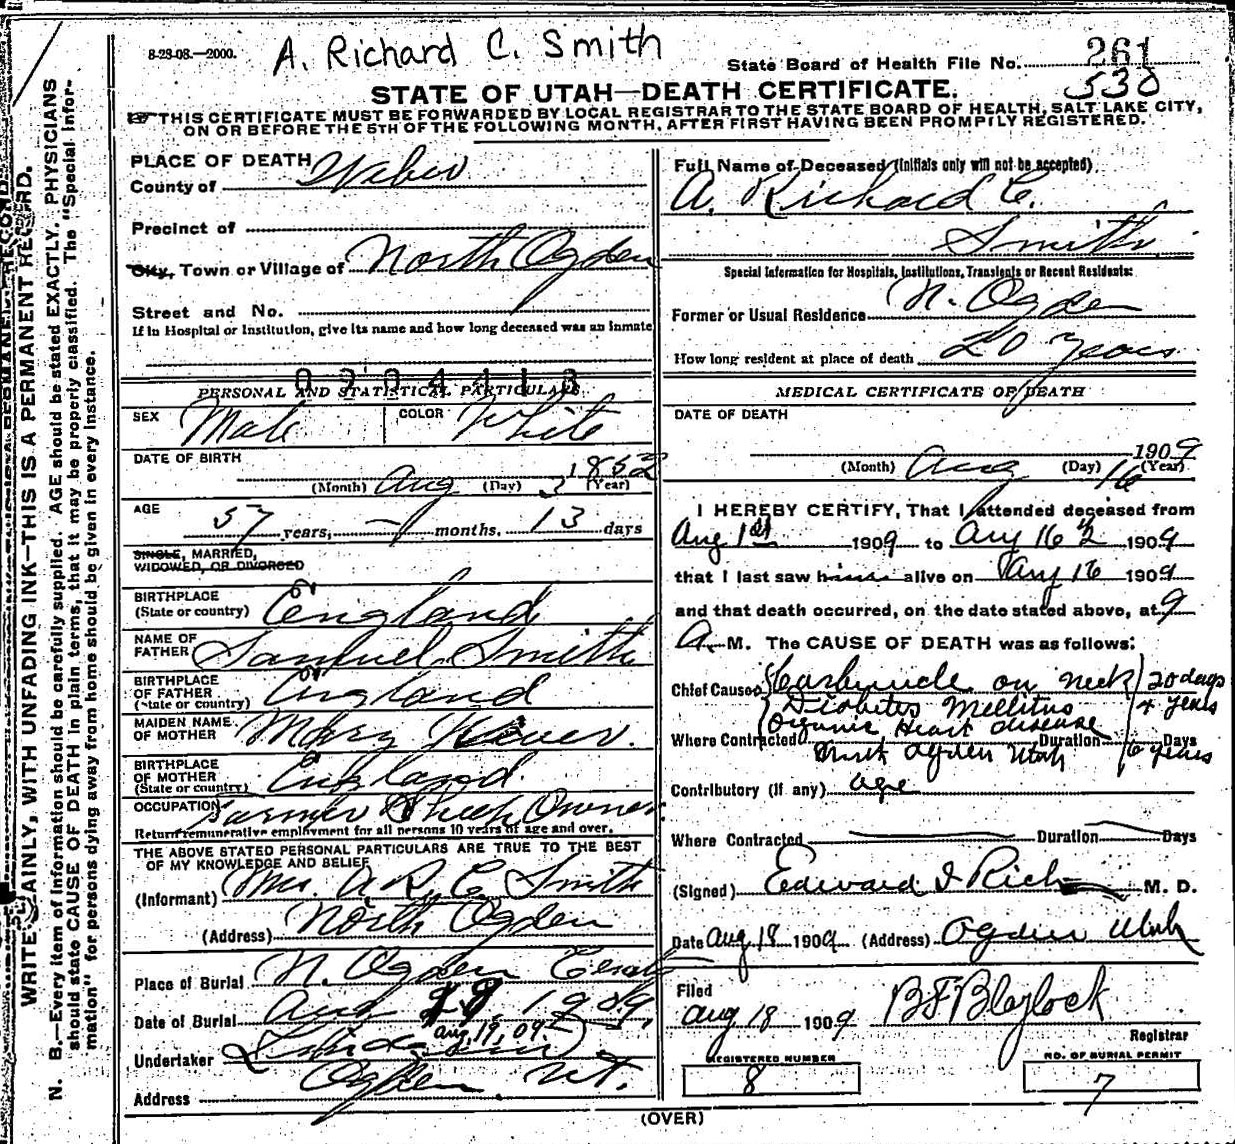 8-28-08.—2000.
A. Richard C. Smith
State Board of Health File No. 261
530
STATE OF UTAH—DEATH CERTIFICATE.
THIS CERTIFICATE MUST BE FORWARDED BY LOCAL REGISTRAR TO THE STATE BOARD OF HEALTH, SALT LAKE CITY,
ON OR BEFORE THE 5TH OF THE FOLLOWING MONTH, AFTER FIRST HAVING BEEN PROMPILY REGISTERED.
WRITE PLAINLY, WITH UNFADING INK—THIS IS A PERMANENT RECORD.
N. B.—Every item of information should be carefully supplied. AGE should be stated EXACTLY. PHYSICIANS
should state CAUSE OF DEATH in plain terms, that it may be properly classified. The "Special Infor-
mation" for persons dying away from home should be given in every instance.
PLACE OF DEATH
County of Weber
Precinct of
City, Town or Village of North Ogden
Street and No.
If in Hospital or Institution, give its name and how long deceased was an inmate
0204413
PERSONAL AND STATISTICAL PARTICULARS
SEX Male COLOR White
DATE OF BIRTH
(Month) Aug (Day) 3 1852 (Year)
AGE
57 years, — months, 13 days
SINGLE, MARRIED,
WIDOWED, OR DIVORCED
BIRTHPLACE
(State or country) England
NAME OF
FATHER Samuel Smith
BIRTHPLACE
OF FATHER
(State or country) England
MAIDEN NAME
OF MOTHER Mary
BIRTHPLACE
OF MOTHER
(State or country) England
OCCUPATION Farmer Sheep Owner
Return remunerative employment for all persons 10 years of age and over.
THE ABOVE STATED PERSONAL PARTICULARS ARE TRUE TO THE BEST
OF MY KNOWLEDGE AND BELIEF
(Informant) Mrs. A R. C Smith
(Address) North Ogden
Place of Burial N. Ogden
Date of Burial Aug 19, 1909
Aug, 19, 09
Undertaker
Ogden Ut.
Address
Full Name of Deceased (Initials only will not be accepted)
A. Richard C.
Smith
Special Information for Hospitals, Institutions, Transients or Recent Residents:
Former or Usual Residence N. Ogden
How long resident at place of death 20 years
MEDICAL CERTIFICATE OF DEATH
DATE OF DEATH
(Month) Aug (Day) 16 1909 (Year)
I HEREBY CERTIFY, That I attended deceased from
Aug 1st 1909 to Aug 16th 1909
that I last saw him alive on Aug 16 1909
and that death occurred, on the date stated above, at 9
A. M. The CAUSE OF DEATH was as follows:
Chief Cause Carbuncle on neck 20 days
Diabetes Mellitus 4 years
Organic Heart disease
Where Contracted North Ogden Utah Duration 6 years Days
Contributory (if any) age
Where Contracted Duration Days
(Signed) Edward I Rich M. D.
Date Aug 18 1909 (Address) Ogden Utah
Filed
Aug 18 1909 B F Blaylock
Registrar
REGISTERED NUMBER
8
NO. OF BURIAL PERMIT
7
(OVER)